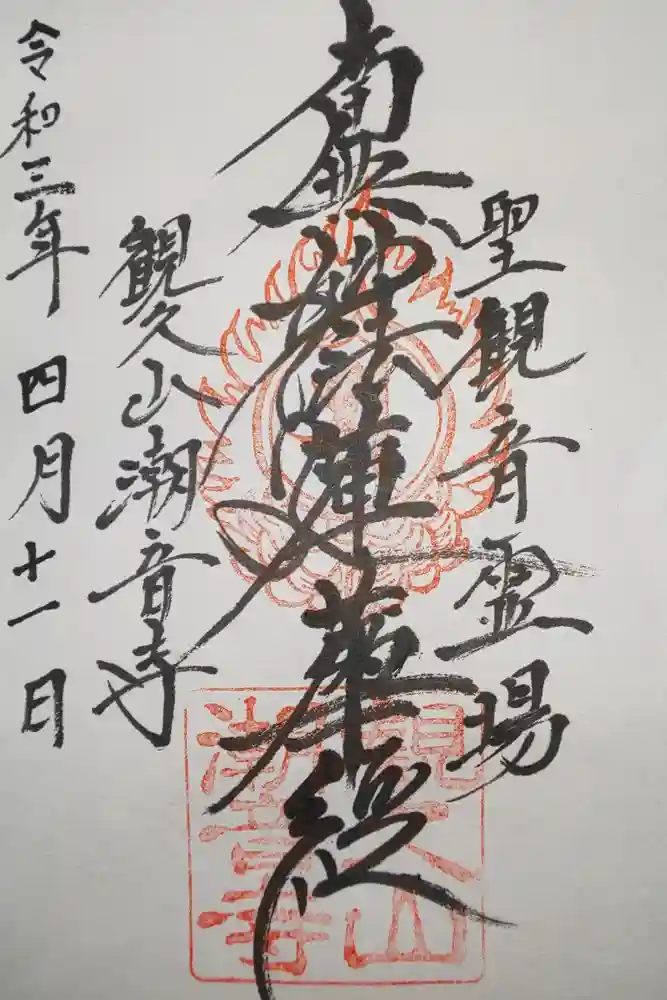 聖観音霊場
南無妙法蓮華経
観久山潮音寺
令和三年 四月十一日
観久山
潮音寺